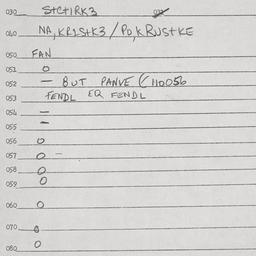 030 StC+IRK3
040 NA,KRISTK3/PO,KRUSTKE
050 FAN
051 O
052 — BUT PANVE (110056
053 FENDL EQ FENDL
054 —
055 —
056 O
057 O —
058 O
059 O
060 O
070 O
080 O